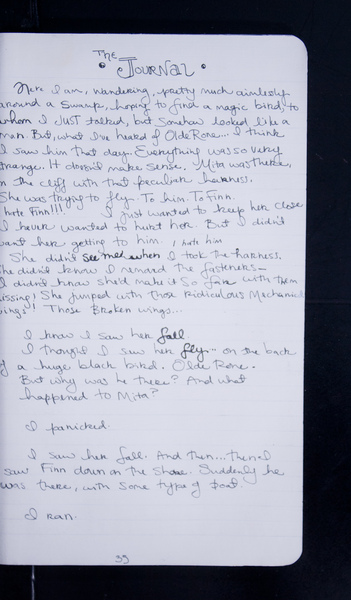 The
• Journal •
Here I am, wandering, pretty much aimlessly
around a swamp, hoping to find a magic bird, to
whom I JUST talked, but somehow looked like a
man. But, what I've heard of Olde Rone... I think
I saw him that day. Everything was so very
strange. It doesn't make sense. Mita was there,
on the cliff with that peculiar harness.
She was trying to fly. To him. To Finn.
I hate Finn!!! I just wanted to keep her close
I never wanted to hurt her. But I didn't
want her getting to him. I hate him
She didn't see me when I took the harness.
She didn't know I removed the fasteners—
I didn't know she'd make it so far with them
missing! She jumped with those Ridiculous Mechanical
wings! Those Broken wings...
I know I saw her fall
I thought I saw her fly... on the back
of a huge black bird. Olde Rone.
But why was he there? And what
happened to Mita?
I panicked.
I saw her fall. And then... then I
saw Finn down on the shore. Suddenly he
was there, with some type of boat.
I ran.